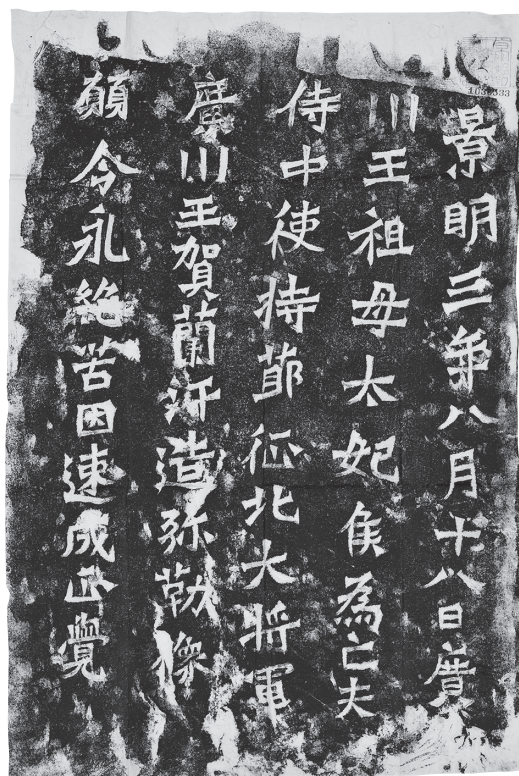 景明三年八月十八日廣
川王祖母太妃侯為亡夫
侍中使持節征北大將軍
廣川王賀蘭汗造弥勒像
願令永絶苦因速成正覺